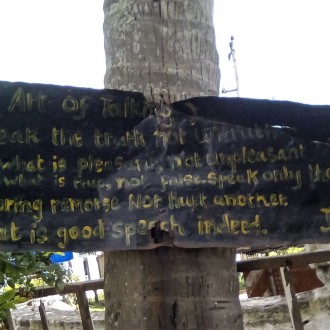 Art of Talking
eak the truth not untruth
what is pleasant, not unpleasant
what is true, not false. Speak only
ring remorse NOR Hurt another.
at is good speech indeed.